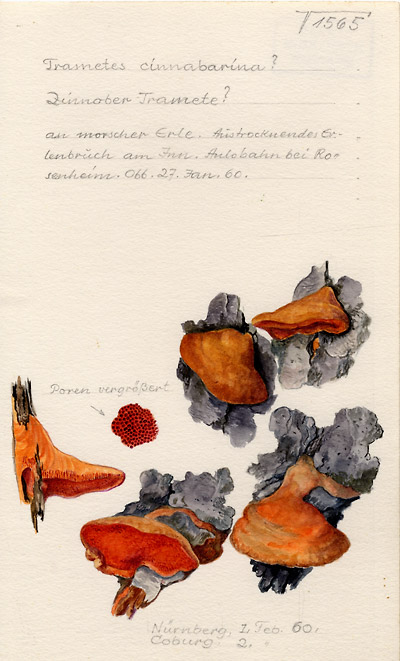 T 1565
Trametes cinnabarina?
Zinnober Tramete?
an morscher Erle. Austrocknendes Er-
lenbruch am Inn. Autobahn bei Ro=
senheim. Obb. 27. Jan. 60.
Poren vergrößert
Nürnberg, 1. Feb. 60.
Coburg 2. "